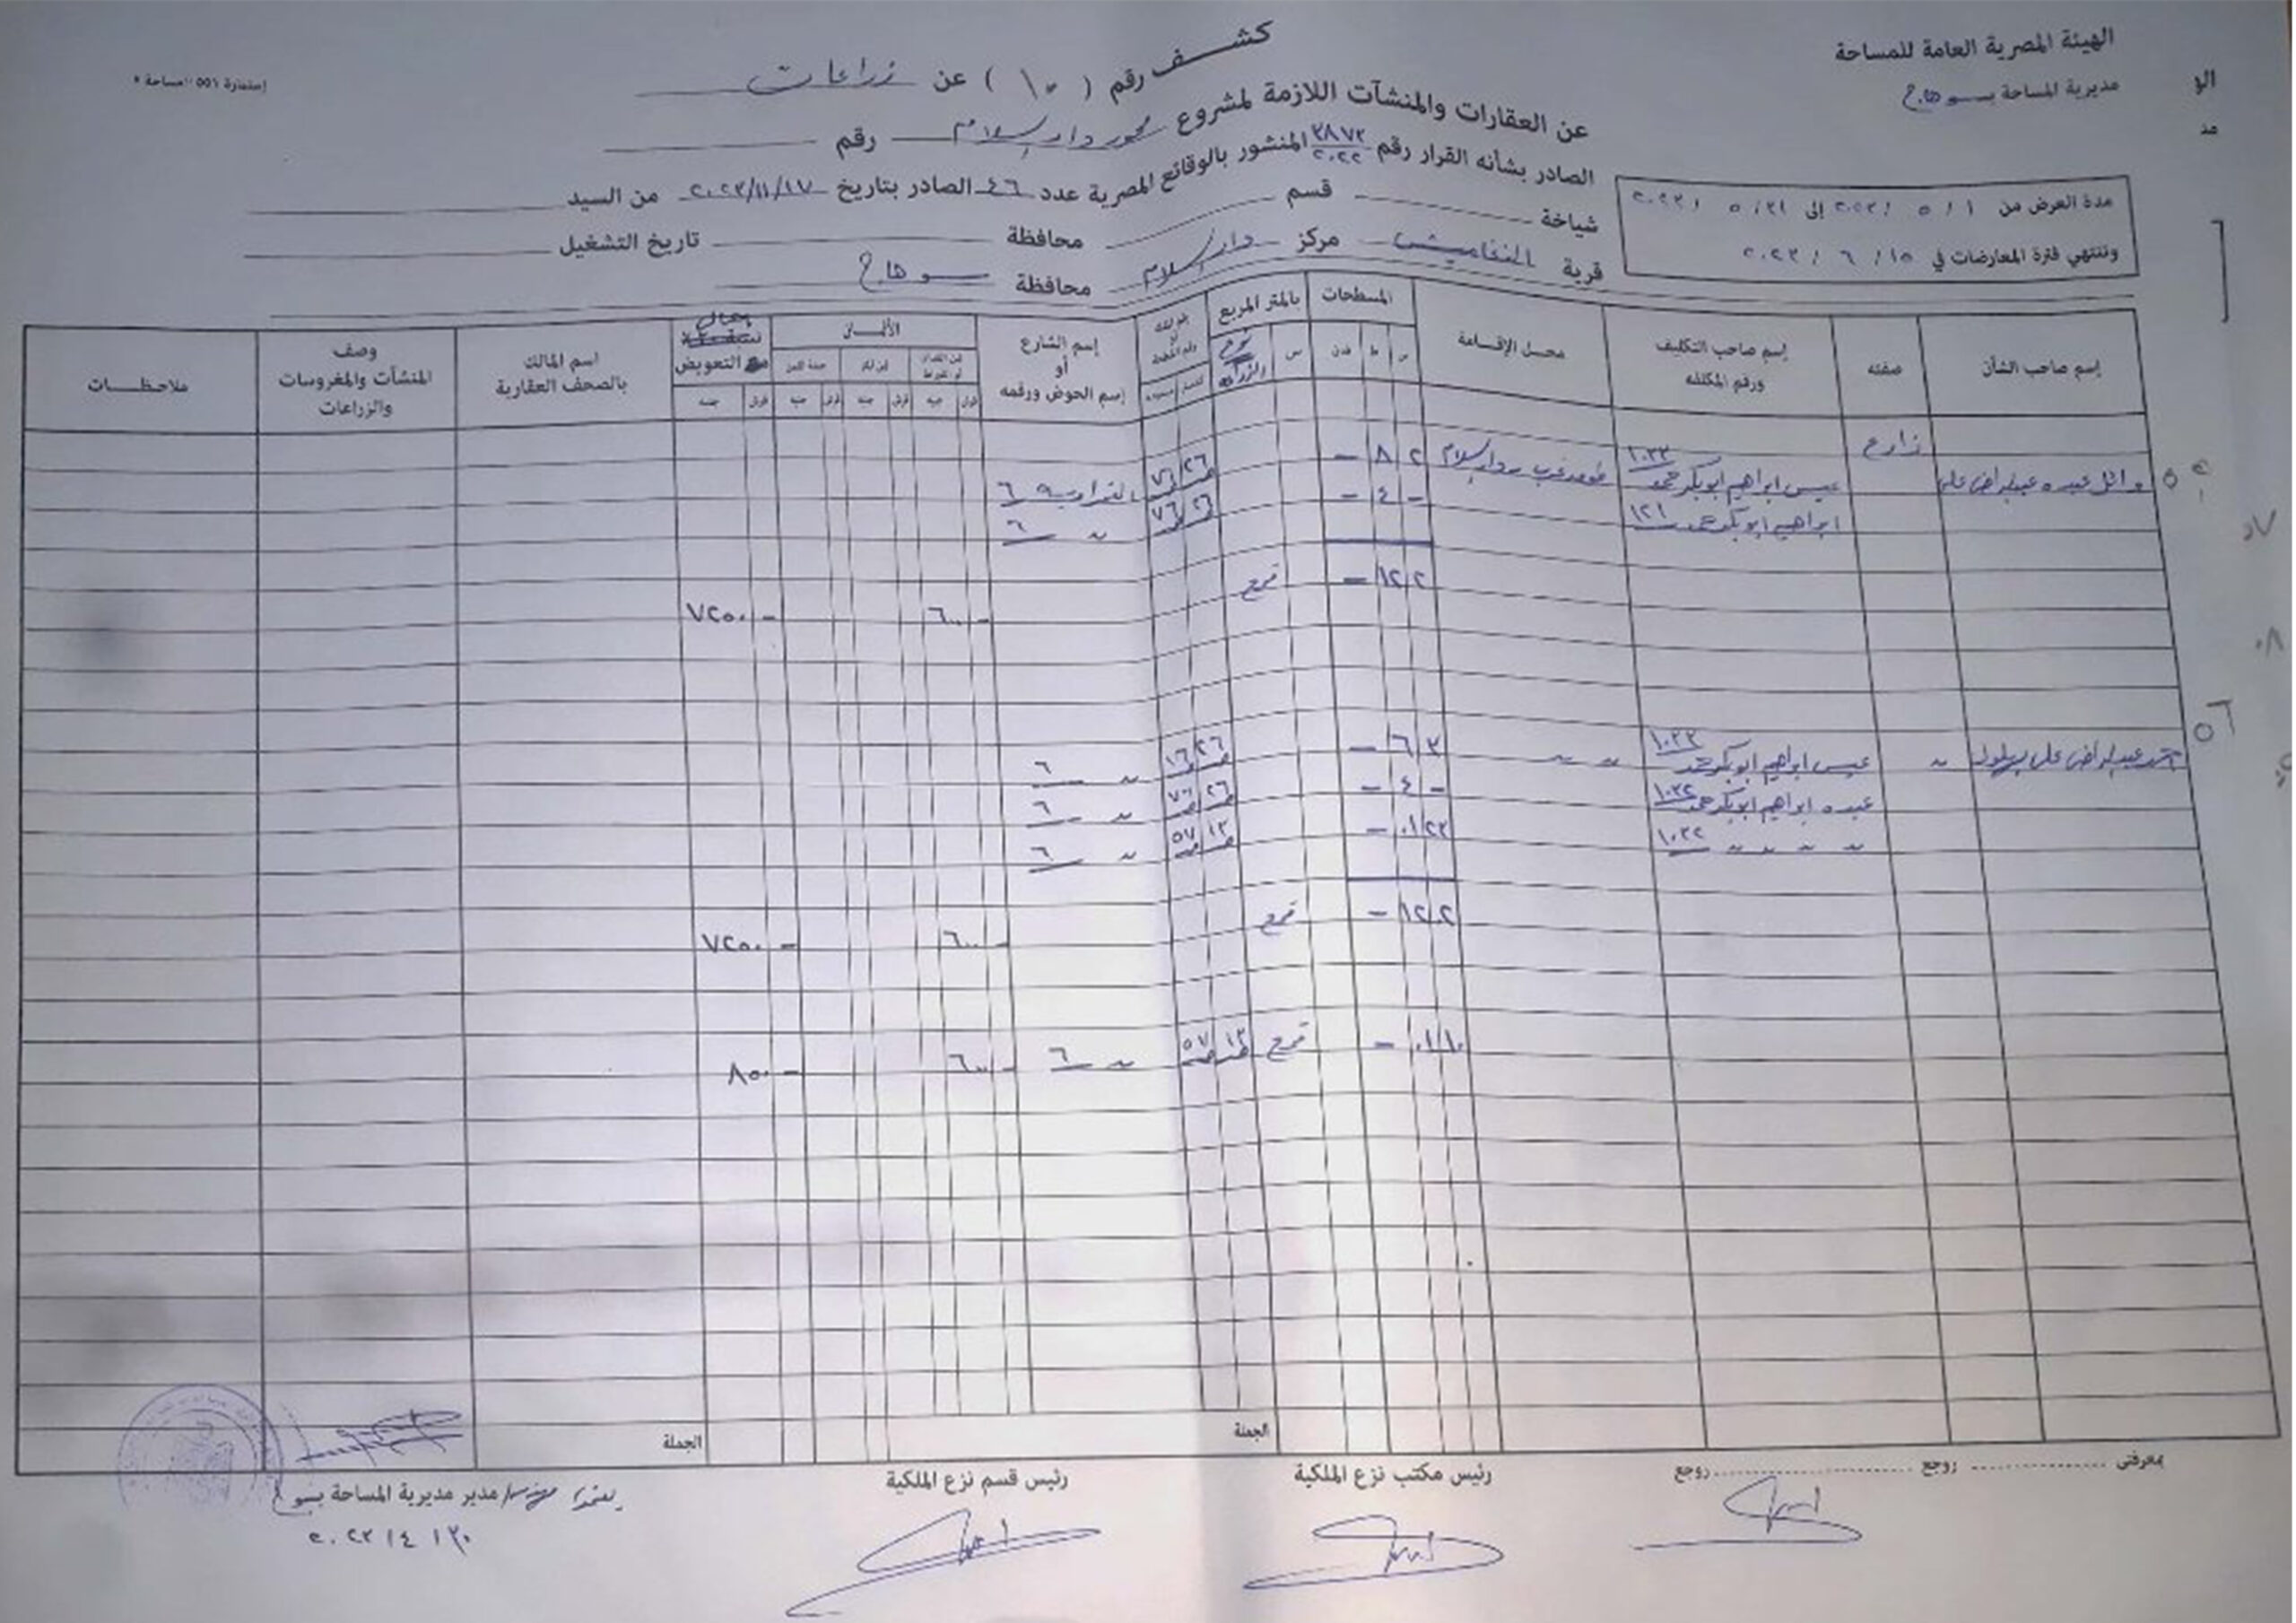 الهيئة المصرية العامة للمساحة
مديرية المساحة بسوهاج
إستمارة ٥٥١ مساحة
كشف رقم ( ١٠ ) عن زراعات
عن العقارات والمنشآت اللازمة لمشروع محور دار السلام رقم
الصادر بشأنه القرار رقم ٣٨٧٢ / ٢٠٢٢ المنشور بالوقائع المصرية عدد ٤٦ الصادر بتاريخ ٢٠٢٢/١١/١٧ من السيد
شياخة قسم محافظة تاريخ التشغيل
قرية النغاميش مركز دار السلام محافظة سوهاج
مدة العرض من ١ / ٥ / ٢٠٢٣ إلى ٣١ / ٥ / ٢٠٢٣
وتنتهي فترة المعارضات في ١٥ / ٦ / ٢٠٢٣
إسم صاحب الشأن
صفته
إسم صاحب التكليف ورقم المكلفه
محل الإقامة
المسطحات
س ط فدن
بالمتر المربع
س نوع الزراعة
إسم الشارع أو إسم الحوض ورقمه
الأثمان
قرش جنيه قرش جنيه قرش جنيه
إجمالى التعويض
قرش جنيه
اسم المالك بالصحف العقارية
وصف المنشآت والمغروسات والزراعات
ملاحظات
وائل عبده عبدالراضى على زارع عيسى ابراهيم ابوبكر محمد ١٠٣٣ ٢ ٨ - ٢٦ ٧٦ ٦
ابراهيم ابوبكر محمد ١٢١ - ٤ - ٢٦ ٧٦ " ٦
٢ ١٢ - قمح
- ٦٠٠ - ٧٢٥٠
٥٦ محمد عبدالراضى على بهلول " عيسى ابراهيم ابوبكر محمد ١٠٣٣ " " ٣ ٦ - ٢٦ ١٦ " ٦
عبده ابراهيم ابوبكر محمد ١٠٣٢ - ٤ - ٢٦ ٧٦ " ٦
" " " " ١٠٣٢ ٢٣ ١ - ١٣ ٥٧ " ٦
٢ ١٢ - قمح
- ٦٠٠ - ٧٢٥٠
١٠ ١ - قمح ١٣ ٥٧ " ٦ - ٦٠٠ - ٨٥٠
الجملة
الجملة
بمعرفتى روجع روجع
رئيس مكتب نزع الملكية
رئيس قسم نزع الملكية
يعتمد مهندس / مدير مديرية المساحة بسوهاج
٢٠٢٣ / ٤ / ٣٠